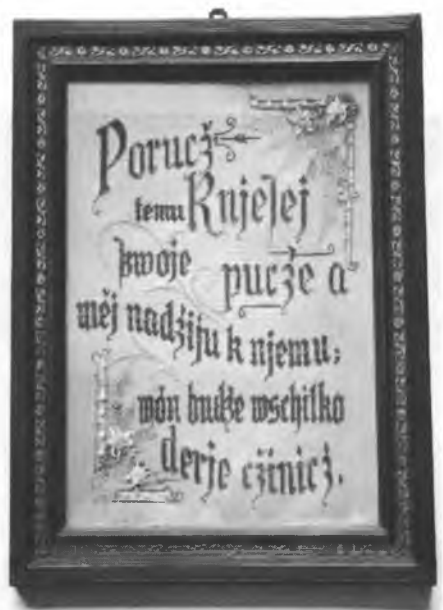 Porucž
temu Knjeſej
ſwoje pucże a
měj nadżiju k njemu;
wón budże wschitko
derje cżinicż.